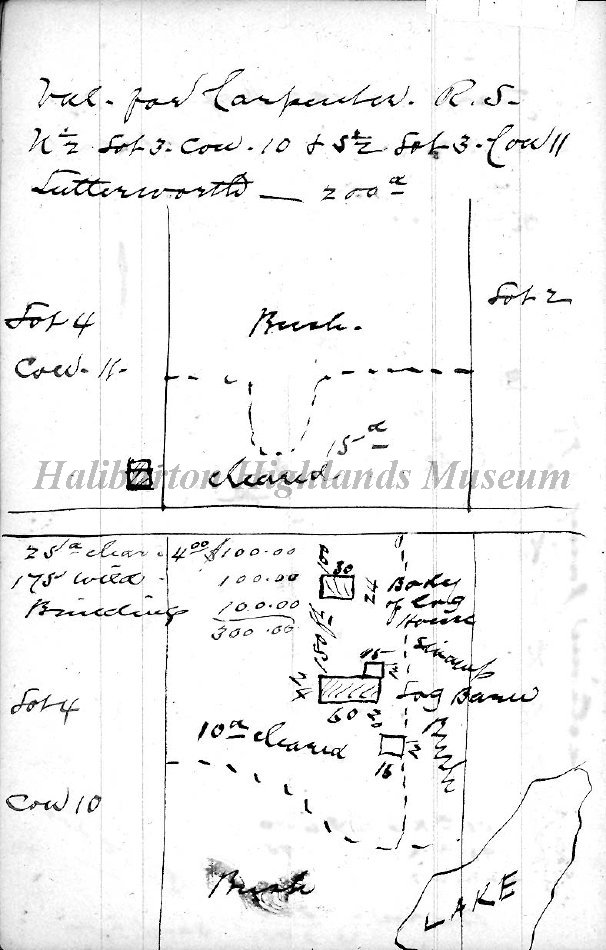 Val. for Carpenter. R.S.
N½ Lot 3. Con. 10 & S½ Lot 3. Con 11
Lutterworth — 200a
Lot 2
Lot 4
Bush.
Con. 11.
15a
cleared.
Haliburton Highlands Museum
25a clear. 4.00 $100.00
175 wild - 100.00
Building 100.00
300.00
30
24
Body of Log House
Swamp
15
12
24
Log Barn
60
Lot 4
10a cleared
Bush
16
Con 10
Bush
LAKE